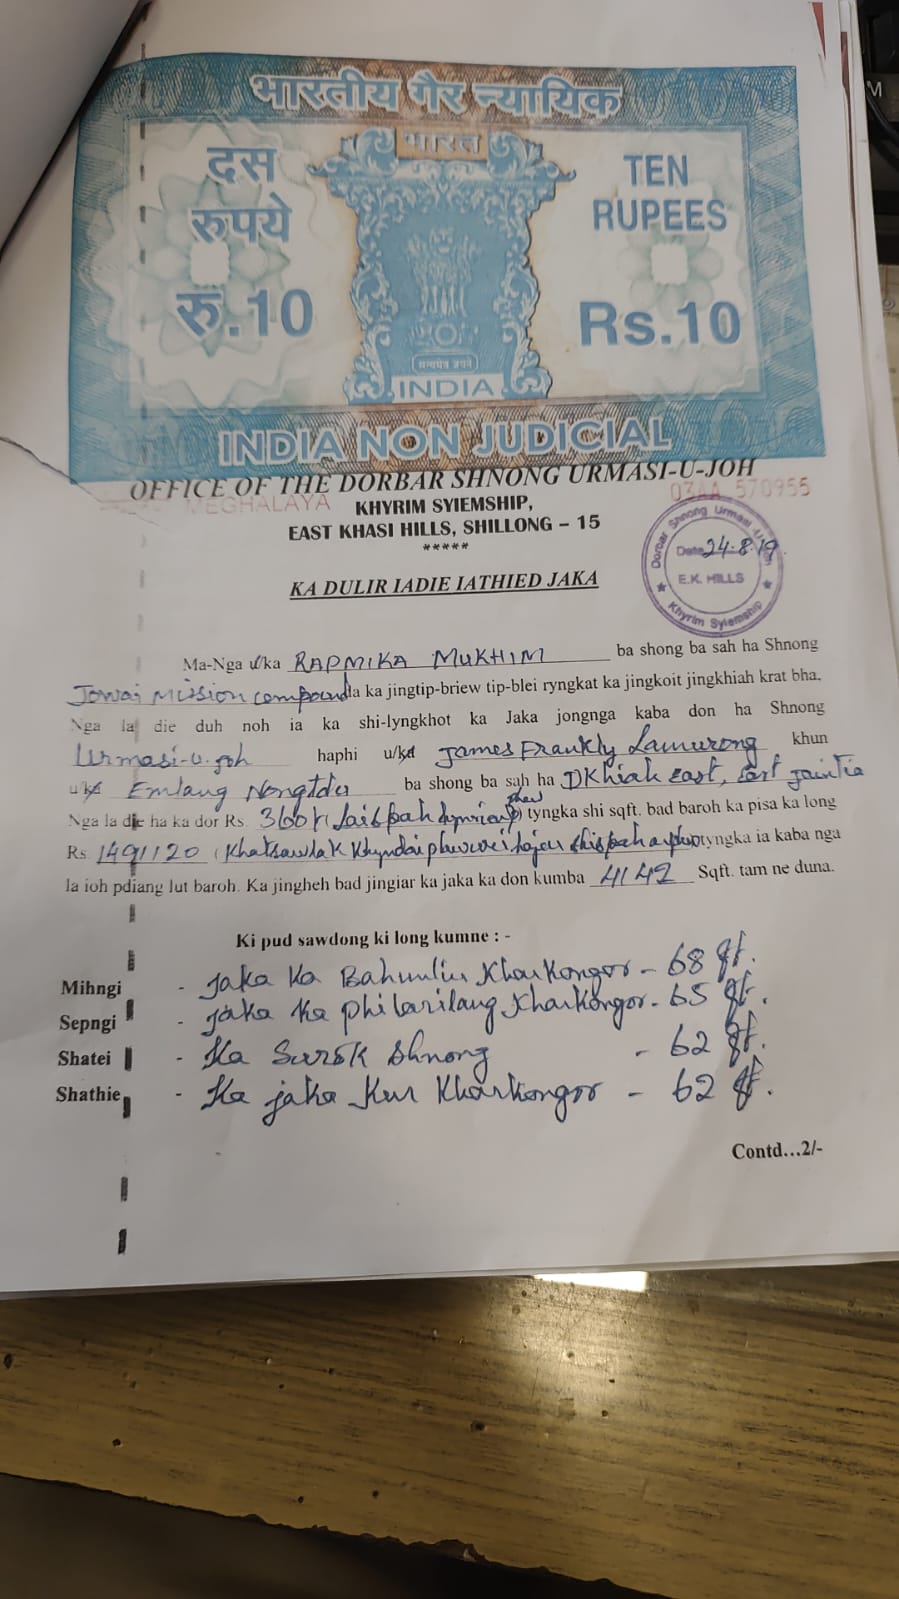 भारतीय गैर न्यायिक
भारत
दस
रुपये
रु.10
TEN
RUPEES
Rs.10
सत्यमेव जयते
INDIA
INDIA NON JUDICIAL
OFFICE OF THE DORBAR SHNONG URMASI-U-JOH
MEGHALAYA
03AA 570955
KHYRIM SYIEMSHIP,
EAST KHASI HILLS, SHILLONG – 15
*****
Dorbar Shnong Urmasi
Date 24.8.19
E.K. HILLS
Khyrim Syiemship
KA DULIR IADIE IATHIED JAKA
Ma-Nga u/ka RAPMIKA MUKHIM ba shong ba sah ha Shnong
Jowai Mission compound la ka jingtip-briew tip-blei ryngkat ka jingkoit jingkhiah krat bha.
Nga la die duh noh ia ka shi-lyngkhot ka Jaka jongnga kaba don ha Shnong
Urmasi-u-joh haphi u/ka James Frankly Lamurong khun
u/ka Emlang Nongtdu ba shong ba sah ha Dkhiah East, East Jaintia
Nga la die ha ka dor Rs. 360/- tyngka shi sqft. bad baroh ka pisa ka long
Rs. 1491120 tyngka ia kaba nga
la ioh pdiang lut baroh. Ka jingheh bad jingiar ka jaka ka don kumba 4142 Sqft. tam ne duna.
Ki pud sawdong ki long kumne : -
Mihngi - Jaka ka Kharkongor - 68 ft.
Sepngi - Jaka ka Philarilang Kharkongor - 65 ft.
Shatei - Ka Surok Shnong - 62 ft.
Shathie - Ka jaka Kur Kharkongor - 62 ft.
Contd...2/-